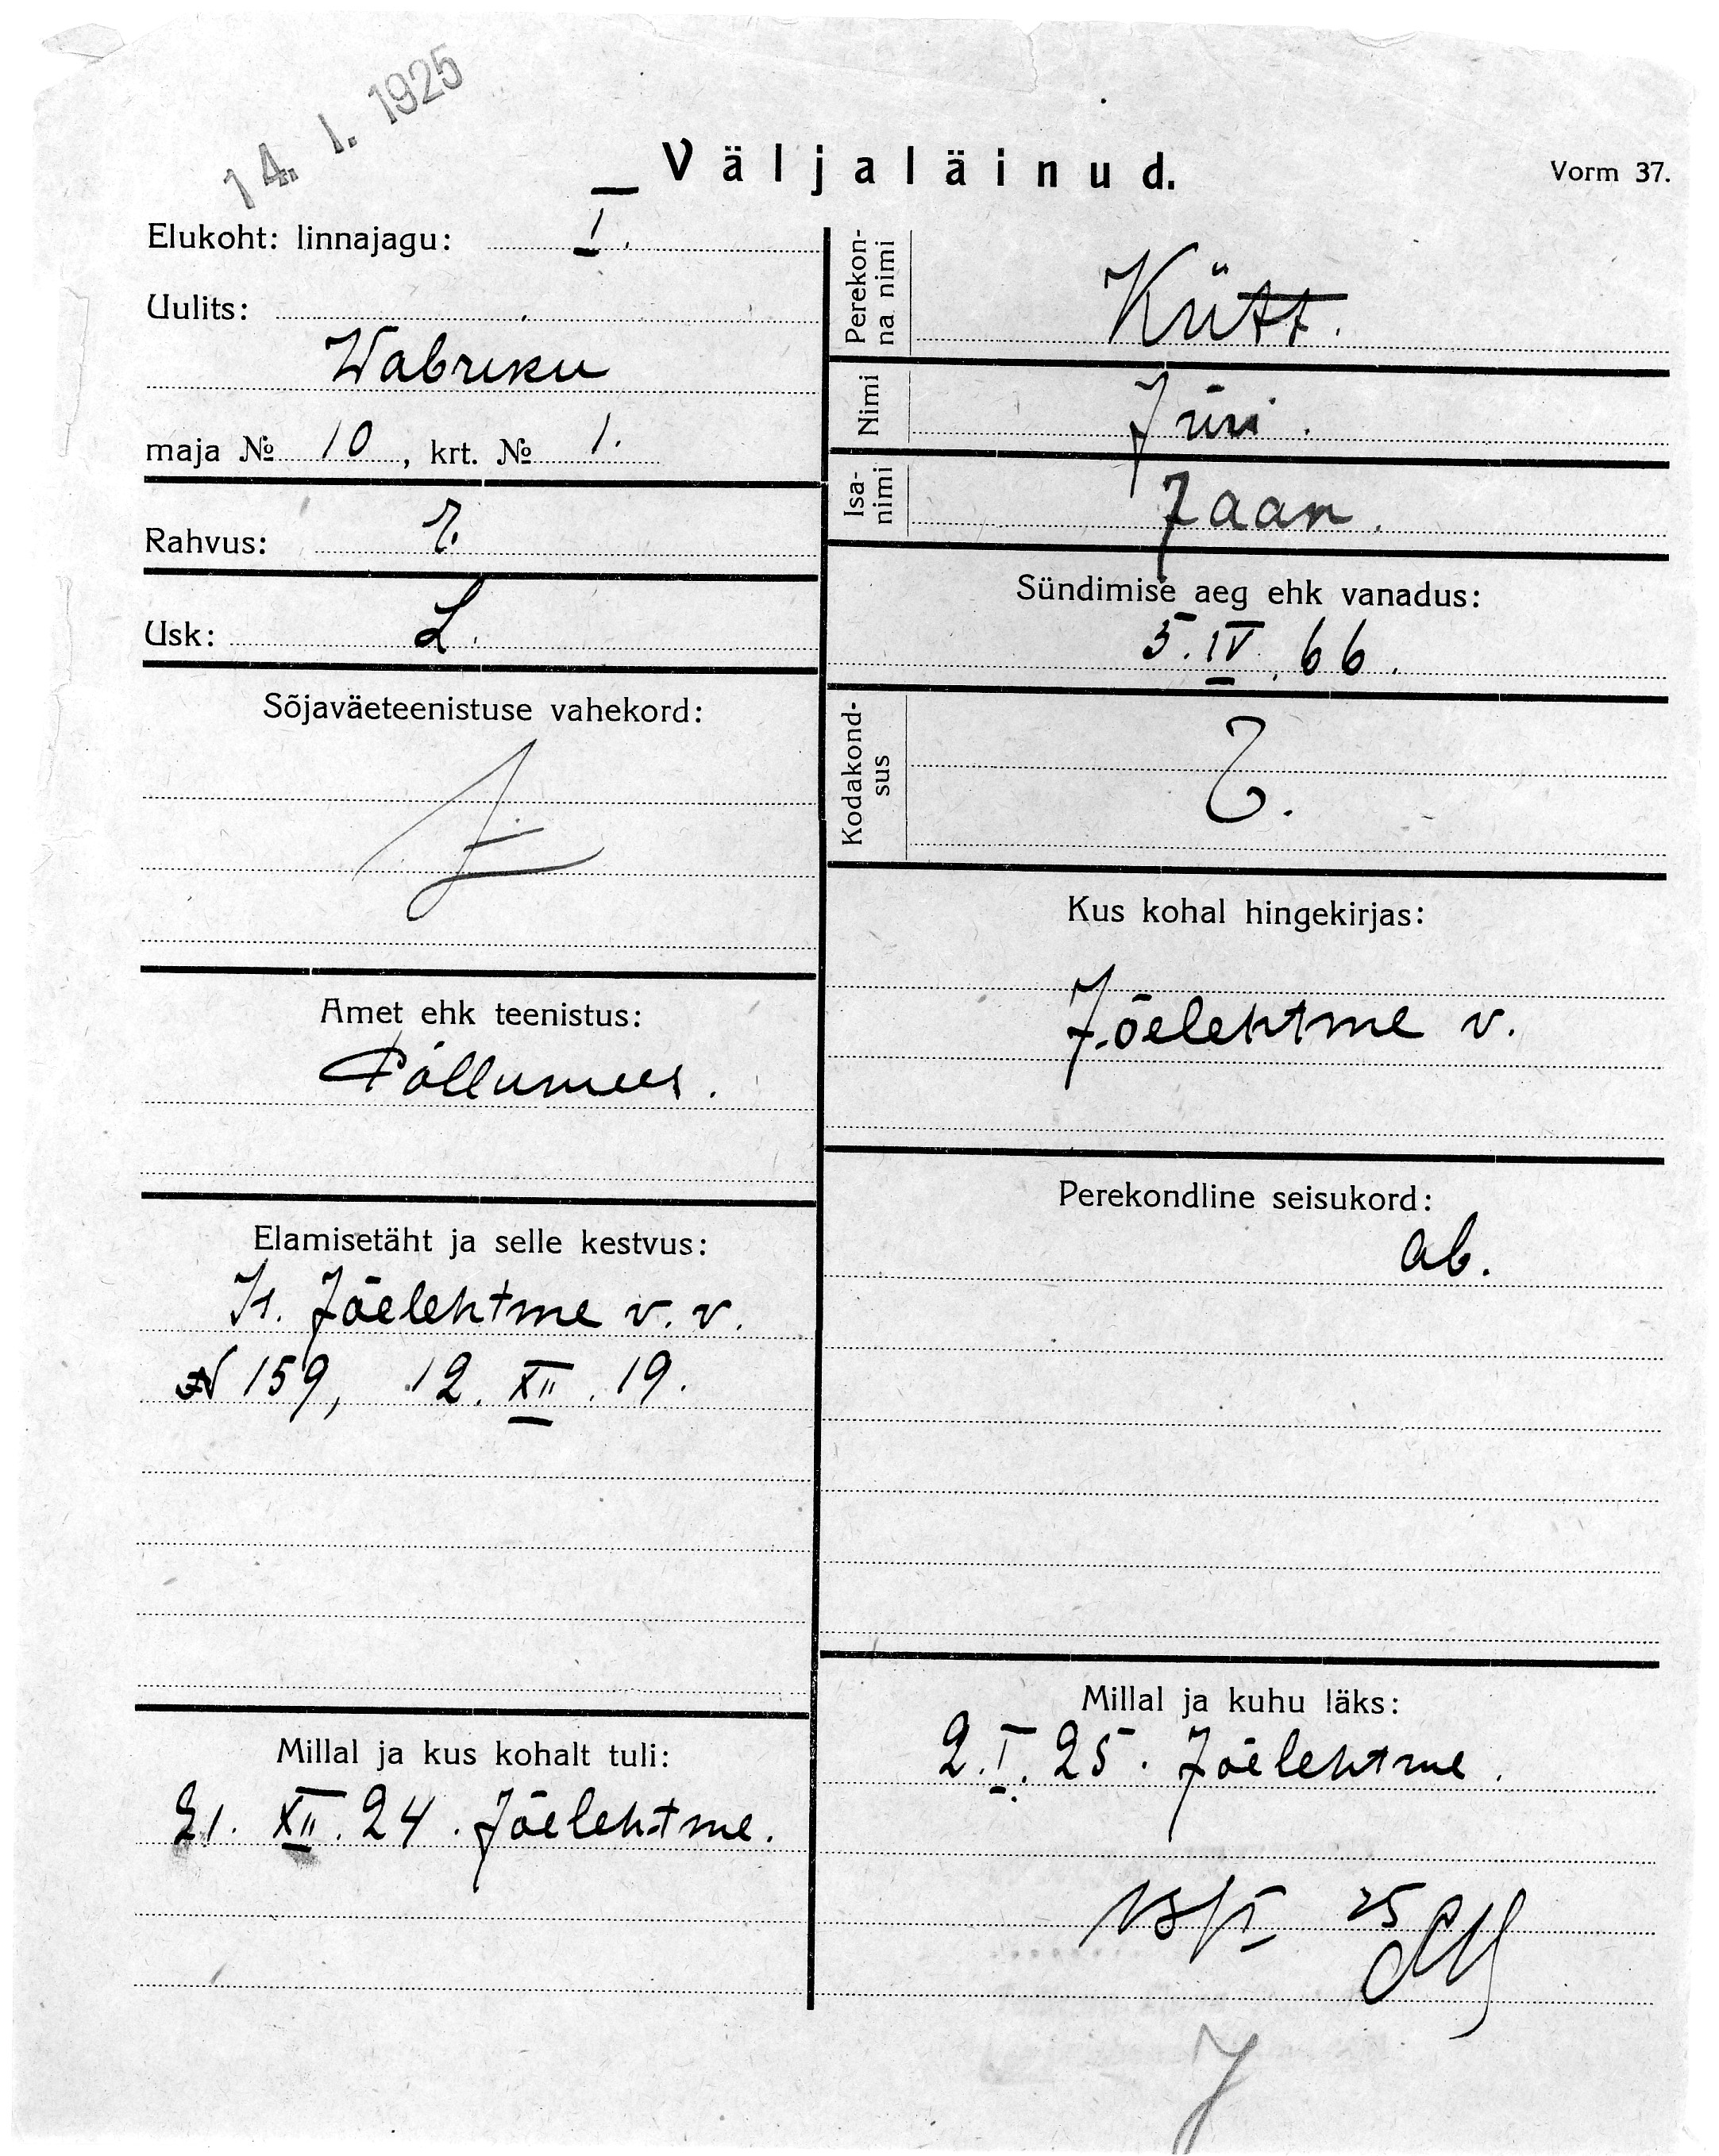 14. I. 1925
Väljaläinud.
Vorm 37.
Elukoht: linnajagu: I.
Uulits:
Wabriku
maja № 10, krt. № 1.
Rahvus:
Usk: L.
Sõjaväeteenistuse vahekord:
Amet ehk teenistus:
Põllumees.
Elamisetäht ja selle kestvus:
It. Jõelehtme v. v.
N 159, 12. XII. 19.
Millal ja kus kohalt tuli:
21. XII. 24. Jõelehtme.
Perekon-
na nimi
Kütt.
Nimi Jüri.
Isa-
nimi
Jaan.
Sündimise aeg ehk vanadus:
5. IV. 66.
Kodakond-
sus
Kus kohal hingekirjas:
Jõelehtme v.
Perekondline seisukord:
ab.
Millal ja kuhu läks:
2. I. 25. Jõelehtme.
13/I 25